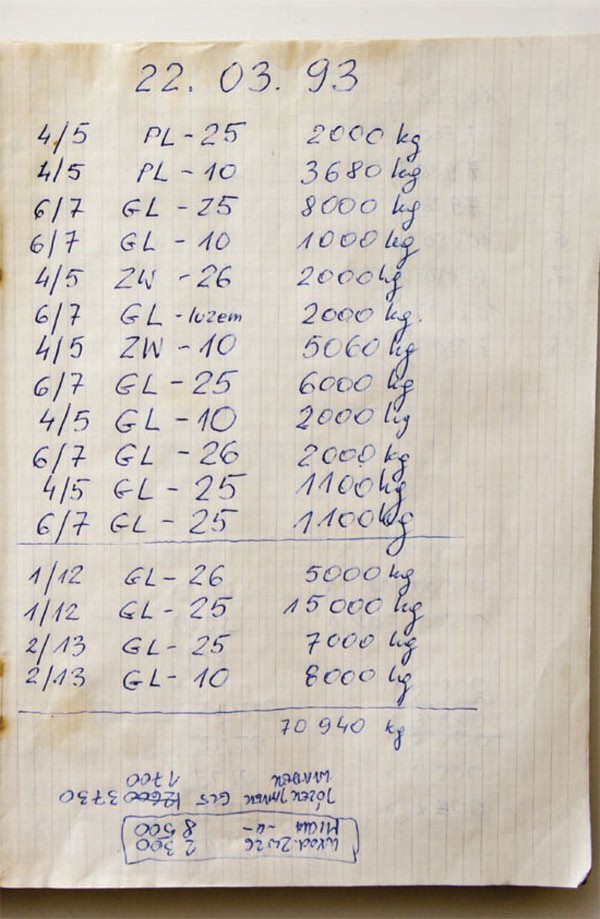 22. 03. 93
4/5 PL - 25 2000 kg
4/5 PL - 10 3680 kg
6/7 GL - 25 8000 kg
6/7 GL - 10 1000 kg
4/5 ZW - 26 2000 kg
6/7 GL - luzem 2000 kg.
4/5 ZW - 10 5060 kg
6/7 GL - 25 6000 kg
4/5 GL - 10 2000 kg
6/7 GL - 26 2000 kg
4/5 GL - 25 1100 kg
6/7 GL - 25 1100 kg
1/12 GL - 26 5000 kg
1/12 GL - 25 15000 kg
2/13 GL - 25 7000 kg
2/13 GL - 10 8000 kg
70 940 kg
1700
3730
8500
2300